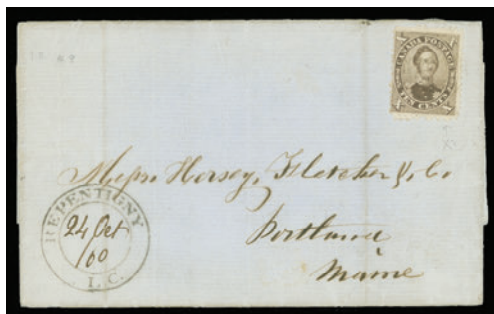 CANADA POSTAGE
TEN CENTS
Messrs Hersey, Fletcher & Co
Portland
Maine
REPENTIGNY
24 Oct
/60
L.C.